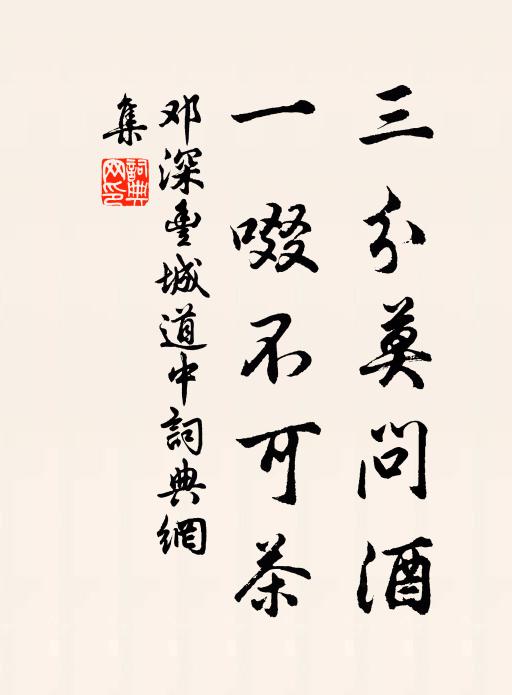 三分莫问酒
一啜不可茶
邓深豊城道中詞典網
集
詞典
网印